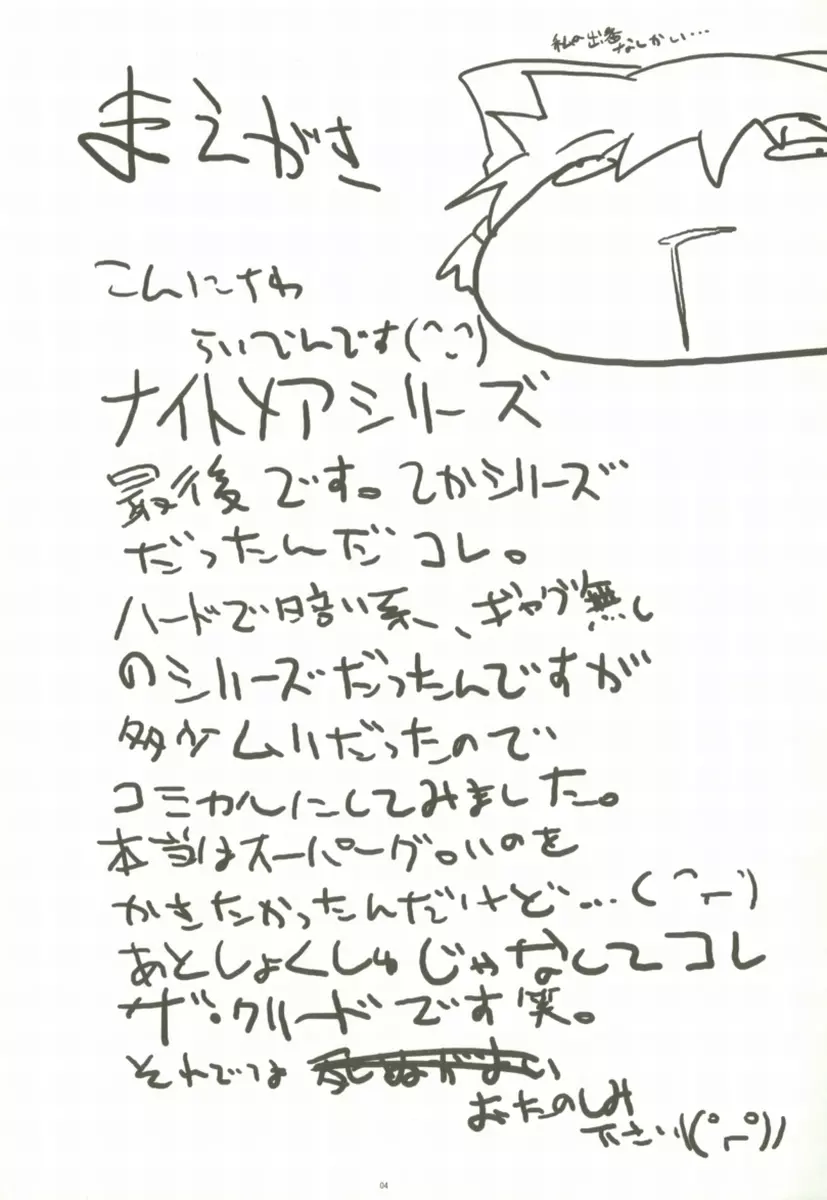 私の出番
なしかい…
まえがき
こんにちわ
らいでんです(^_^)
ナイトメアシリーズ
最後です。てかシリーズ
だったんだコレ。
ハードで暗い系、ギャグ無し
のシリーズだったんですが
多少ムリだったので
コミカルにしてみました。
本当はスーパーグ。いのを
かきたかったんだけど…(
あとしょくしゅじゃなくてコレ
ザ・クリードです笑。
それでは 死ぬがよい
おたのしみ
下さい
04